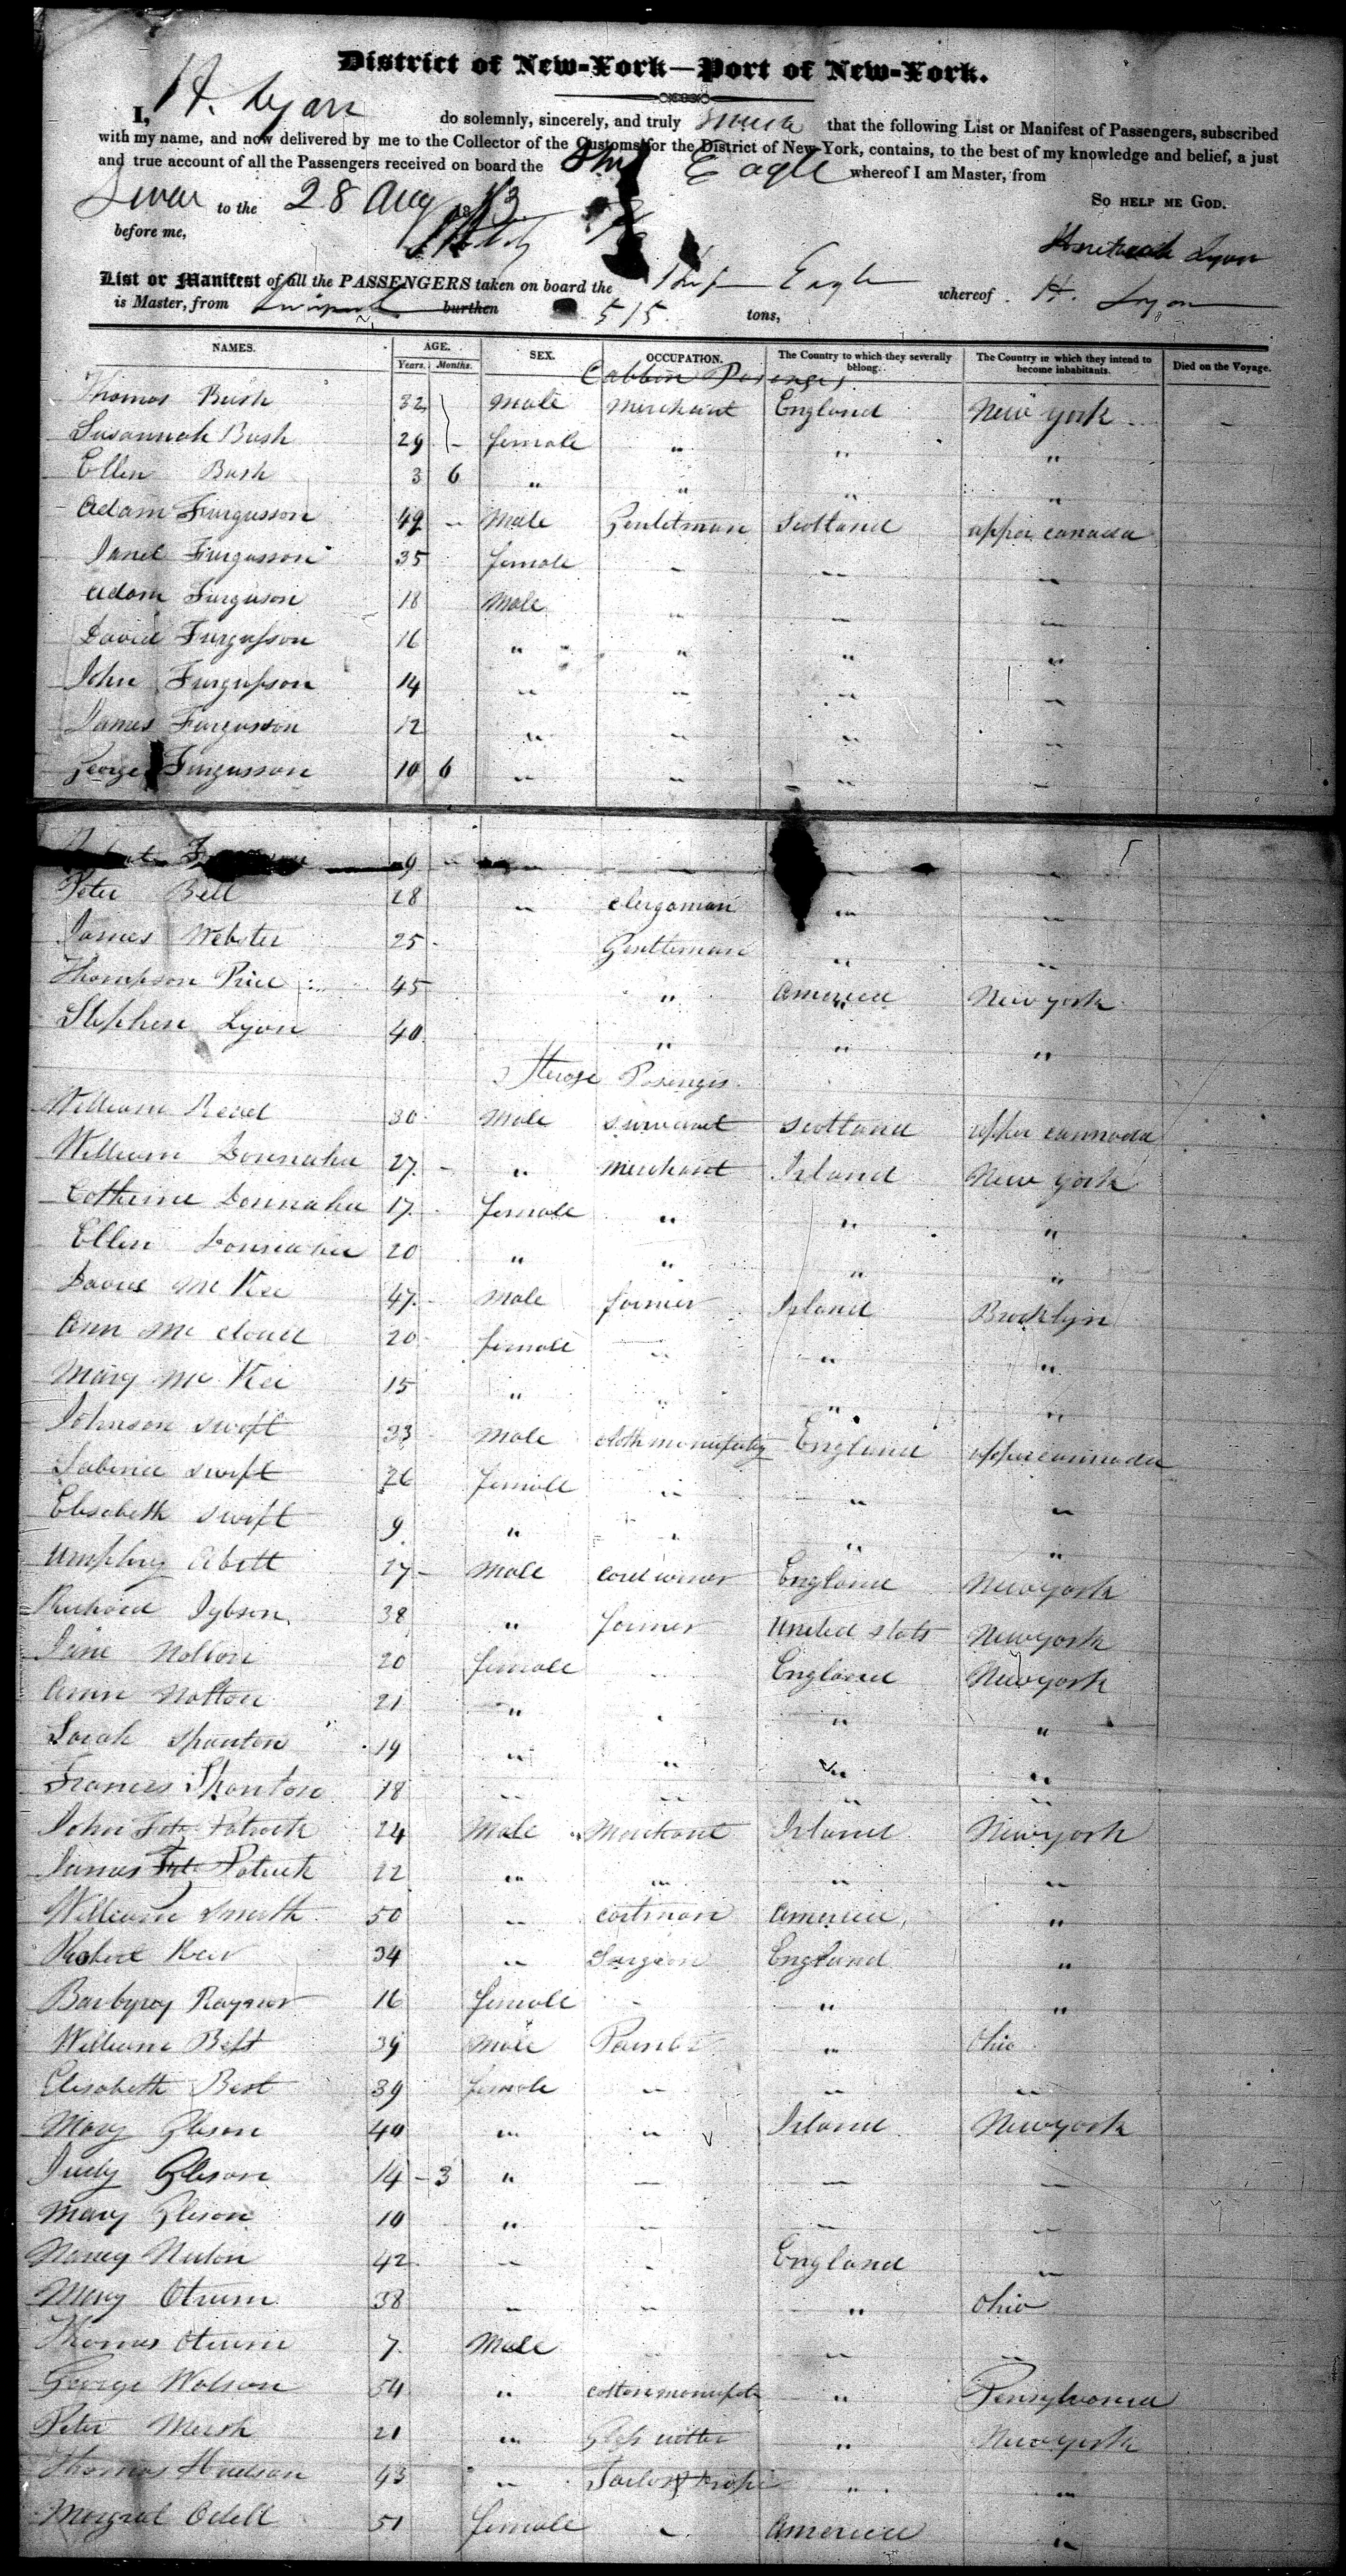 District of New-York—Port of New-York.
I, H. Lyon do solemnly, sincerely, and truly that the following List or Manifest of Passengers, subscribed
with my name, and now delivered by me to the Collector of the Customs for the District of New-York, contains, to the best of my knowledge and belief, a just
and true account of all the Passengers received on board the Ship Eagle whereof I am Master, from
to the 28 Aug 18
So HELP ME GOD.
before me,
Lyon
List or Manifest of all the PASSENGERS taken on board the Ship Eagle whereof H. Lyon
is Master, from burthen 515 tons,
NAMES. AGE. Years. Months. SEX. OCCUPATION. The Country to which they severally belong. The Country in which they intend to become inhabitants. Died on the Voyage.
Cabbin Pasenges
Thomas Bush 32 male merchant England New york
Susannah Bush 29 - female " " "
Ellen Bush 3 6 " " " "
Adam Furgusson 49 - male Scotland upper canada
Janet Furgusson 35 female - - -
Adam Furguson 18 male - - -
David Furgusson 16 " " " "
John Furgusson 14 " " " "
James Furgusson 12 " " " "
George Furgusson 10 6 " " " "
9 - - - -
Peter Bell 28 " clergaman " "
James Webster 25 Gentleman " "
Thompson Price 45 " America New york
Stephen Lyon 40 " " "
Sterage Pasenges
William Read 30 male Scotland upper cannada
William Donnahu 27 " merchant Irland New york
Catherine Donnahu 17 female " " "
Ellen Donnahu 20 " " " "
David Mc Kee 47 male farmer Irland Brooklyn
Ann Mc cloud 20 female " " "
Mary Mc Kee 15 " " " "
Johnson Swift 33 male England upper cannada
Sabina Swift 26 female " " "
Elisabeth Swift 9 " " " "
Umphry Abett 27 - male England New york
Richard 38 " farmer United stats New york
Jane Nolton 20 female England New york
Ann Nolton 21 " " " "
Sarah Shanton 19 " " " "
Frances Shanton 18 " " " "
John Fitz Patrick 24 male Merchant Irland New york
James Fitz Patrick 22 " " " "
William Smith 50 " cartman America "
Robert 34 " Surgeon England "
Raynor 16 female - " "
William Best 39 male " Ohio
Elisabeth Best 39 female " " "
Mary Glison 40 " " Irland New york
Judy Glison 14 - 3 " - - -
Mary Glison 10 " - - -
Nancy 42 - - England "
Mary Otrum 38 - - " Ohio
Thomas Otrum 7 male - - -
George Watson 54 " " Pensylvania
Peter 21 " Glass cutter " New york
Thomas Hudson 43 " " "
Margrat Odell 51 female - America "